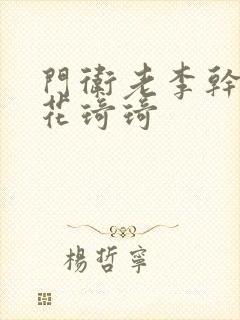 門衛老李幹
花琦琦
楊哲寧